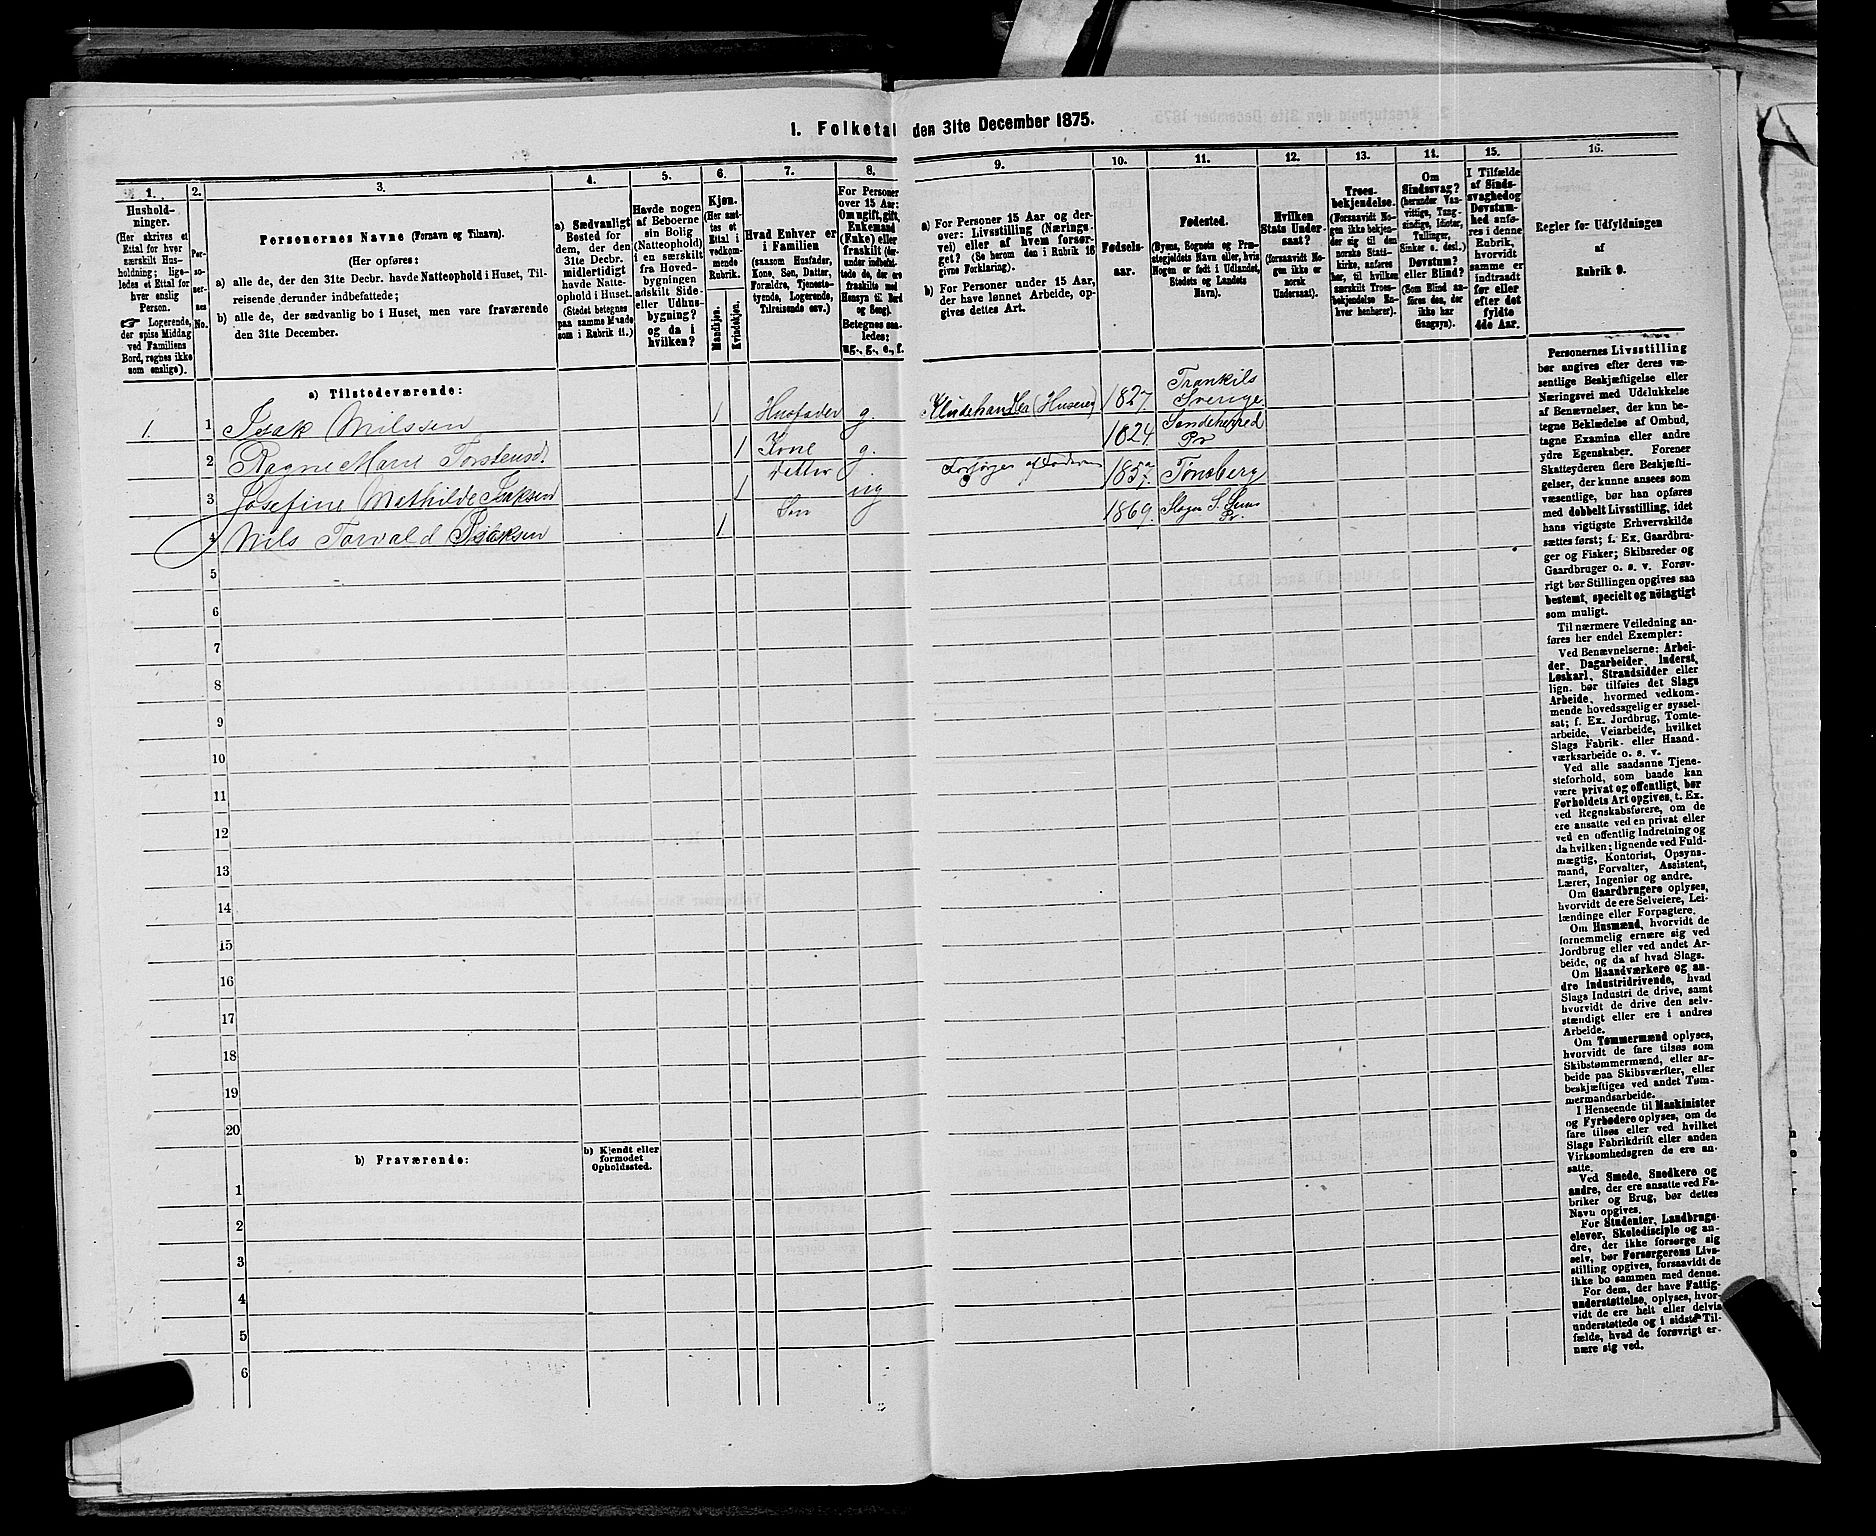 1. Folketal den 31te December 1875.
1.
Hushold-
ninger.
(Her skrives et
Ettal for hver
særskilt Hus-
holdning; lige-
ledes et Ettal for
hver enslig
Person.
☞ Logerende,
der spise Middag
ved Familiens
Bord, regnes ikke
som enslige).
2.
Per-
so-
ner-
nes
No.
3.
Personernes Navne (Fornavn og Tilnavn).
(Her opføres:
a) alle de, der den 31te Decbr. havde Natteophold i Huset, Til-
reisende derunder indbefattede;
b) alle de, der sædvanlig bo i Huset, men vare fraværende
den 31te December.
4.
a) Sædvanligt
Bosted for
dem, der den
31te Decbr.
midlertidigt
havde Natte-
ophold i Huset.
(Stedet betegnes
paa samme Maade
som i Rubrik 11.)
5.
Havde nogen
af Beboerne
sin Bolig
(Natteophold)
i en særskilt
fra Hoved-
bygningen
adskilt Side-
eller Udhus-
bygning?
og da i
hvilken?
6.
Kjøn.
(Her sæt-
tes et
Ettal i
vedkom-
mende
Rubrik.
Mandkjøn.
Kvindekjøn.
7.
Hvad Enhver er
i Familien
(saasom Husfader,
Kone, Søn, Datter,
Forældre, Tjeneste-
tyende, Logerende,
Tilreisende osv.)
8.
For Personer
over 15 Aar:
Om ugift, gift,
Enkemand
(Enke) eller
fraskilt (der-
under indbefat-
tede de, der ere
fraskilte med
Hensyn til Bord
og Seng).
Betegnes saa-
ledes:
ug., g., e., f.
9.
a) For Personer 15 Aar og der-
over: Livsstilling (Nærings-
vei) eller af hvem forsør-
get? (Se herom den i Rubrik 16
givne Forklaring).
b) For Personer under 15 Aar,
der have lønnet Arbeide, op-
gives dettes Art.
10.
Fødsels-
aar.
11.
Fødested.
(Byens, Sognets og Præ-
stegjeldets Navn eller, hvis
Nogen er født i Udlandet,
Stedets og Landets
Navn).
12.
Hvilken
Stats Under-
saat?
(forsaavidt No-
gen ikke er
norsk
Undersaat).
13.
Troes-
bekjendelse.
(Forsaavidt No-
gen ikke bekjen-
der sig til den
norske Stats-
kirke, anføres
her, til hvilken
særskilt Troes-
bekjendelse En-
hver henhører).
14.
Om
Sindssvag?
(herunder Van-
vittige, Tung-
sindige, Idioter,
Tullinger,
Sinker o. desl.)
Døvstum?
eller Blind?
(Som Blind an-
føres den, der
ikke har
Gangsyn).
15.
I Tilfælde
af Sinds-
svaghed og
Døvstum-
hed anfø-
res i denne
Rubrik,
hvorvidt
samme er
indtraadt
før eller
efter det
fyldte
4de Aar.
16.
Regler for Udfyldningen
af
Rubrik 9.
a) Tilstedeværende:
1. 1 Isak Nilssen 1 Husfader g. Kludehandler (Huseier) 1827. Trankils Sverige.
2 Ragne Marie Torstensd. 1 Kone g. 1824. Sandeherred Pr
3 Josefine Mathilde Isaksen 1 Datter ug Forsørges af Faderen 1857. Tønsberg
4 Nils Torvald Isaksen 1 Søn 1869. Slagn S. Sems Pr.
5
6
7
8
9
10
11
12
13
14
15
16
17
18
19
20
b) Fraværende:
b) Kjendt eller
formodet
Opholdssted.
1
2
3
4
5
6
Personernes Livsstilling
bør angives efter deres væ-
sentlige Beskjæftigelse eller
Næringsvei med Udelukkelse
af Benævnelser, der kun be-
tegne Beklædelse af Ombud,
tagne Examina eller andre
ydre Egenskaber. Forener
Skatteyderen flere Beskjæfti-
gelser, der kunne ansees som
væsentlige, bør han opføres
med dobbelt Livsstilling, idet
hans vigtigste Erhvervskilde
sættes først; f. Ex. Gaardbru-
ger og Fisker; Skibsreder og
Gaardbruger o. s. v. Forøv-
rigt bør Stillingen opgives saa
bestemt, specielt og nöiagtigt
som muligt.
Til nærmere Veiledning an-
føres her endel Exempler:
Ved Benævnelserne: Arbei-
der, Dagarbeider, Inderst,
Løskarl, Strandsidder eller
lign. bør tilføies det Slags
Arbeide, hvormed vedkom-
mende hovedsagelig er syssel-
sat; f. Ex. Jordbrug, Tomte-
arbeide, Veiarbeide, hvilket
Slags Fabrik- eller Haand-
værksarbeide o. s. v.
Ved alle saadanne Tjene-
steforhold, som baade kan
være privat og offentligt, bør
Forholdets Art opgives, t. Ex.
ved Regnskabsførere, om de
ere ansatte ved en privat eller
ved en offentlig Indretning og
da hvilken; lignende ved Fuld-
mægtig, Kontorist, Opsyns-
mand, Forvalter, Assistent,
Lærer, Ingeniør og andre.
Om Gaardbrugere oplyses,
hvorvidt de ere Selveiere, Lei-
lændinge eller Forpagtere.
Om Husmænd, hvorvidt de
fornemmelig ernære sig ved
Jordbrug eller ved andet Ar-
beide, og da af hvad Slags.
Om Haandværkere og an-
dre Industridrivende, hvad
Slags Industri de drive, samt
hvorvidt de drive den selv-
stændigt eller ere i andres
Arbeide.
Om Tømmermænd oplyses,
hvorvidt de fare tilsøs som
Skibstømmermænd, eller ar-
beide paa Skibsværfter, eller
beskjæftiges ved andet Tøm-
mermandsarbeide.
I Henseende til Maskinister
og Fyrbødere oplyses, om de
fare tilsøs eller ved hvilket
Slags Fabrikdrift eller anden
Virksomhedsgren de ere an-
satte.
Ved Smede, Snedkere og
andre, der ere ansatte ved Fa-
briker og Brug, bør dettes
Navn opgives.
For Studenter, Landbrugs-
elever, Skoledisciple og an-
dre, der ikke forsørge sig
selv, bør Forsørgerens Livs-
stilling opgives, forsaavidt de
ikke bo sammen med denne.
For dem, der have Fattig-
understøttelse, oplyses, hvor-
vidt de ere helt eller delvis
understøttede og i sidste Til-
fælde, hvad de forøvrigt er-
nære sig ved.